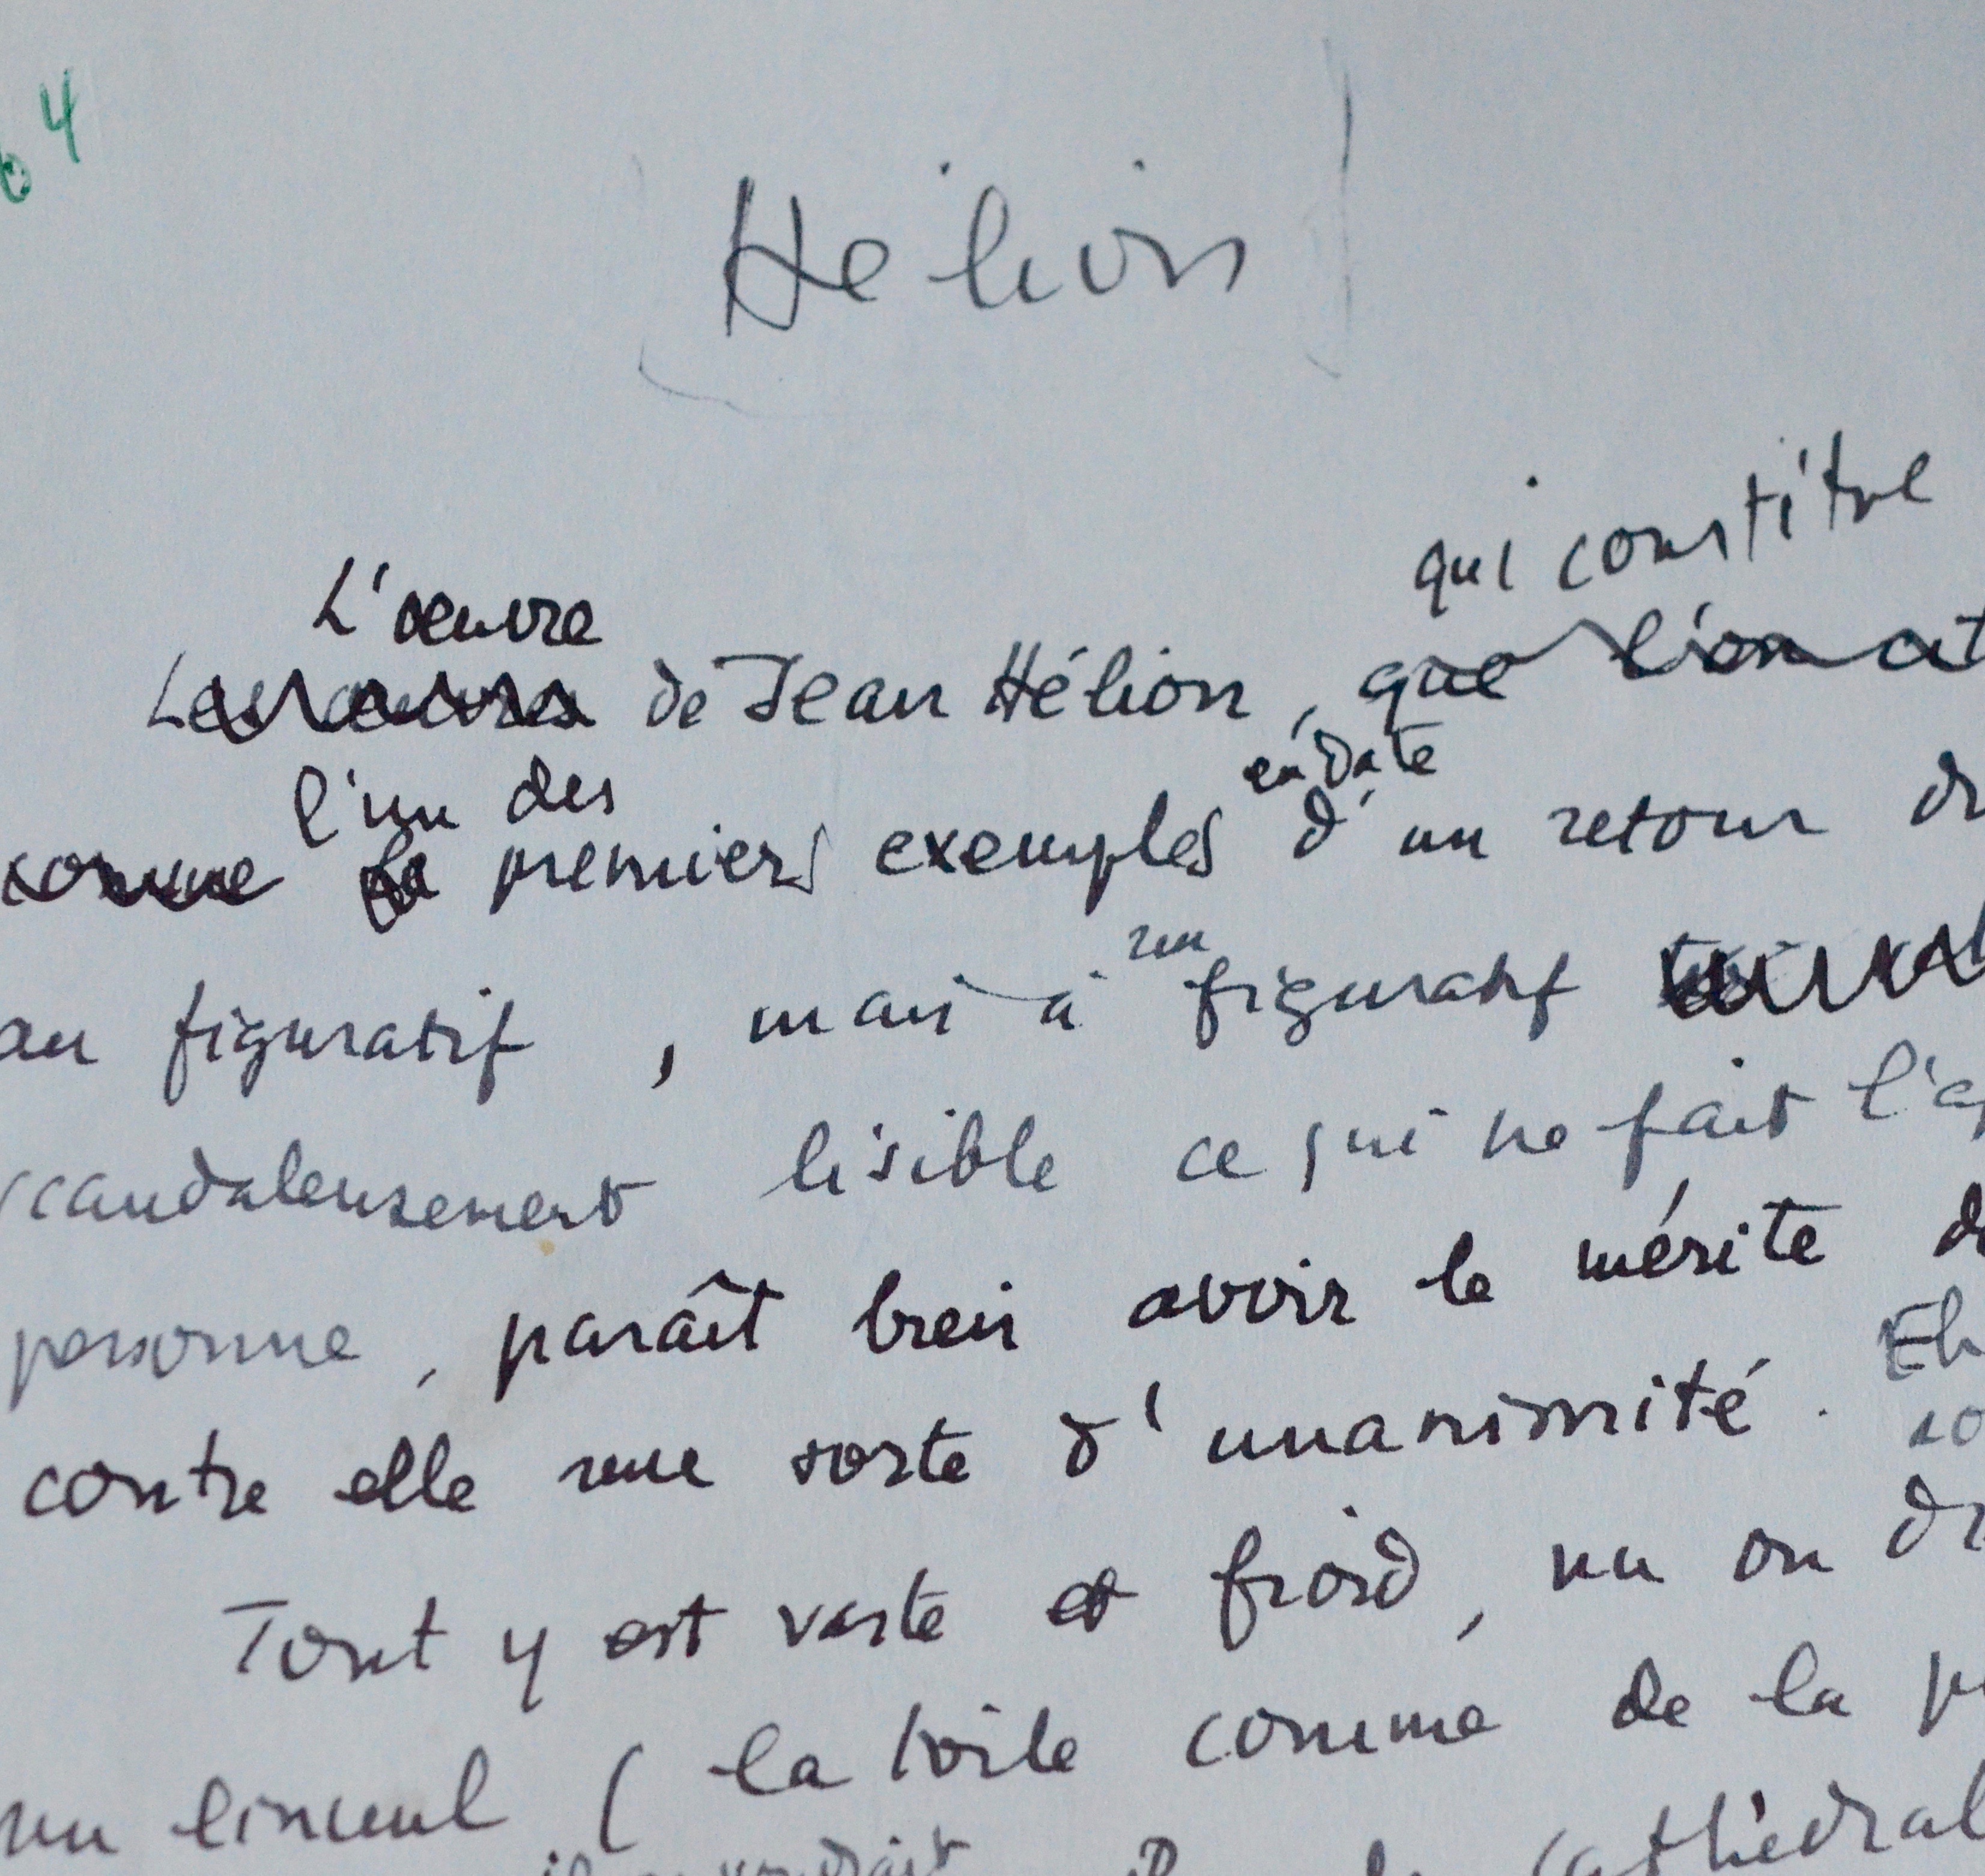 64
Hélion
qui constitue
L'oeuvre
Les oeuvres de Jean Hélion, que l'on
en date
l'un des
comme premiers exemples d'un retour
au figuratif, mais à figuratif
scandaleusement lisible ce qui ne fait
personne, paraît bien avoir le mérite
contre elle une sorte d'unanimité.
Tout y est vaste et froid, nu ou
un linceul (la toile comme de la